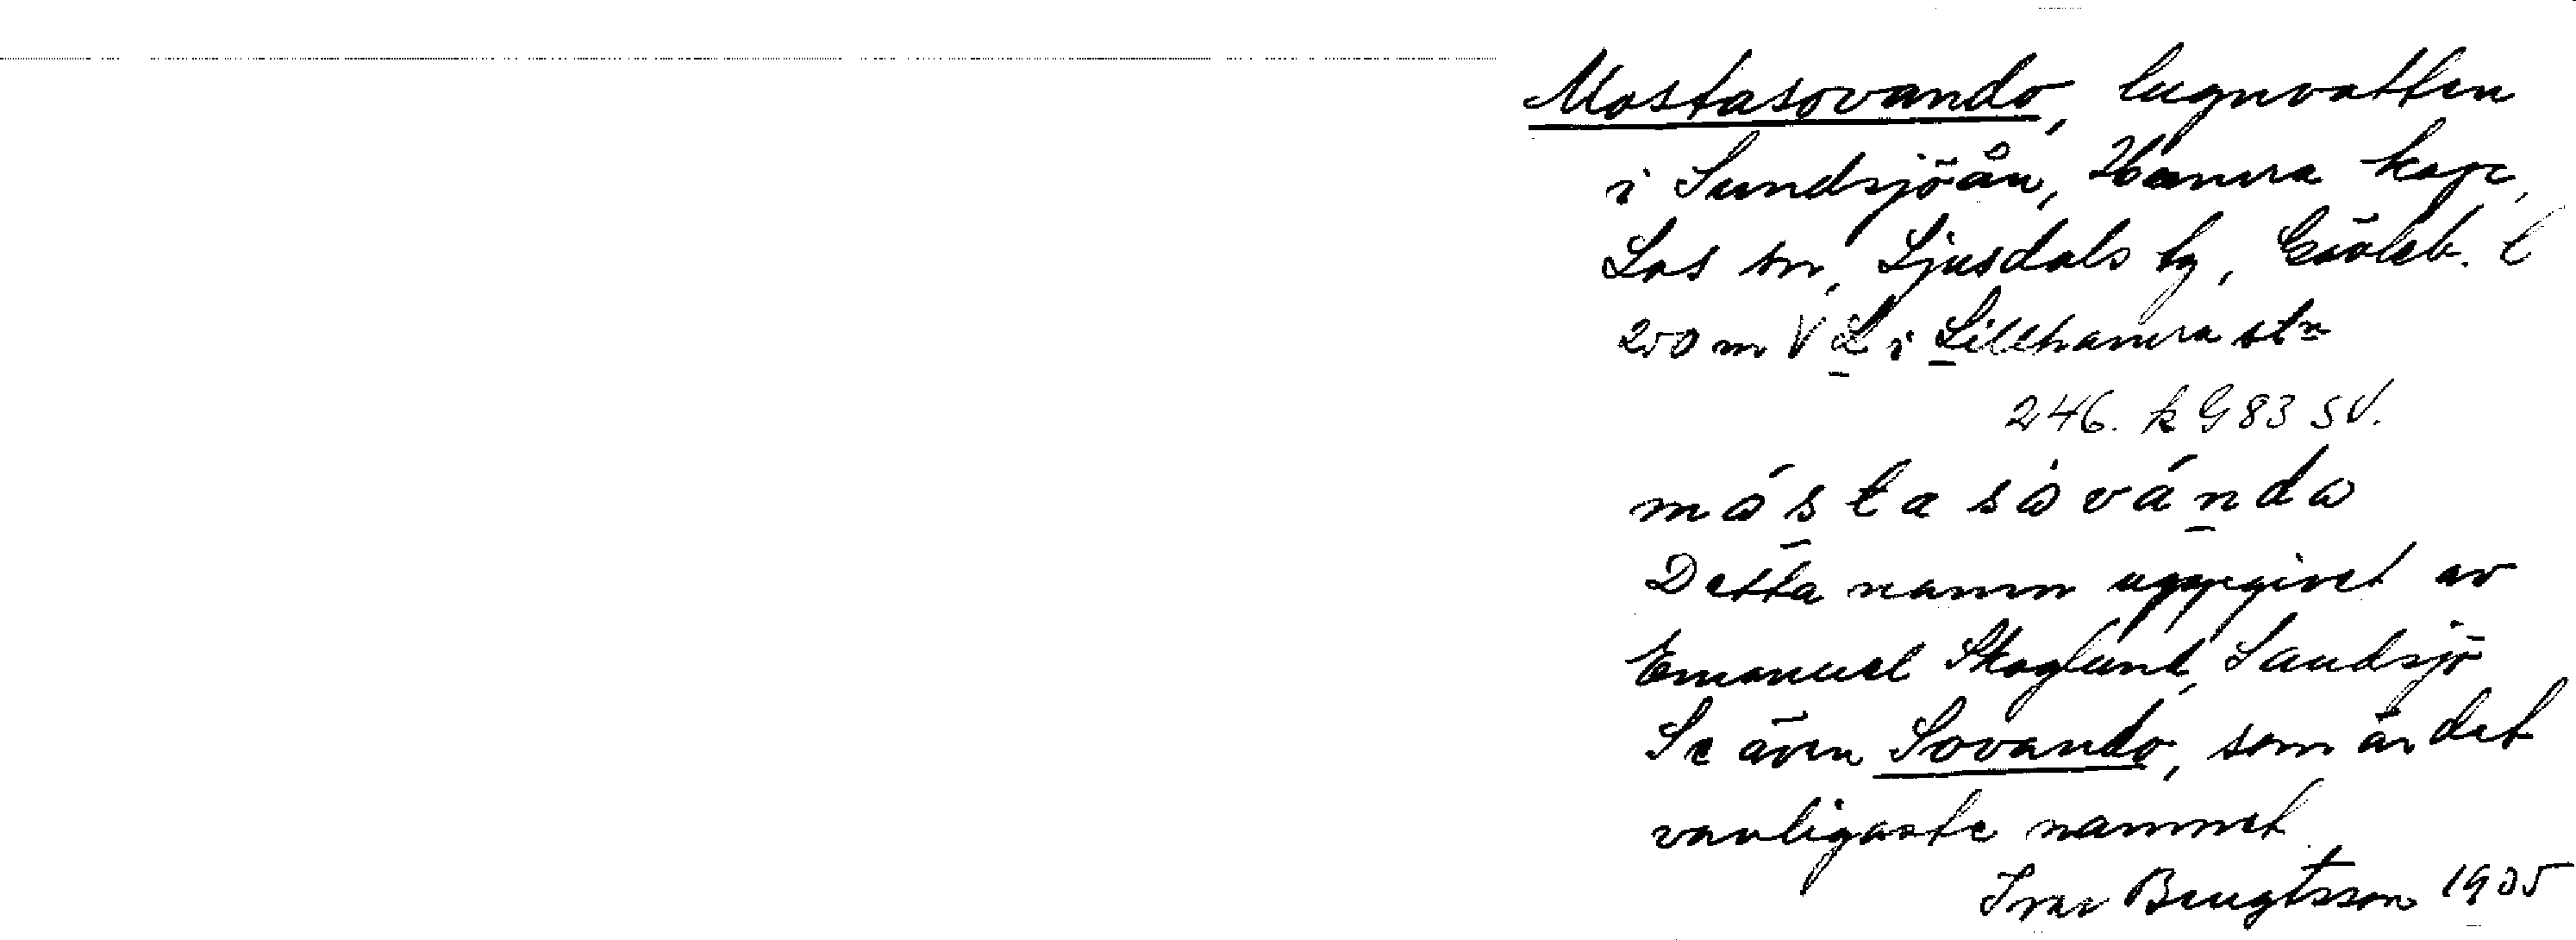 Mostasovando, lugnvatten
i Sundsjöån, Hamra kape,
Los sn, Ljusdals tg, Gävleb. l
250 m V L i Lillhamra stn
246. k G 83 SV.
mástasòvánda
Detta namn uppgivet av
Emanuel Skoglund, Sandsjö
Se även Sovando, som är det
vanligaste namnet
Ivar Bengtsson 1935